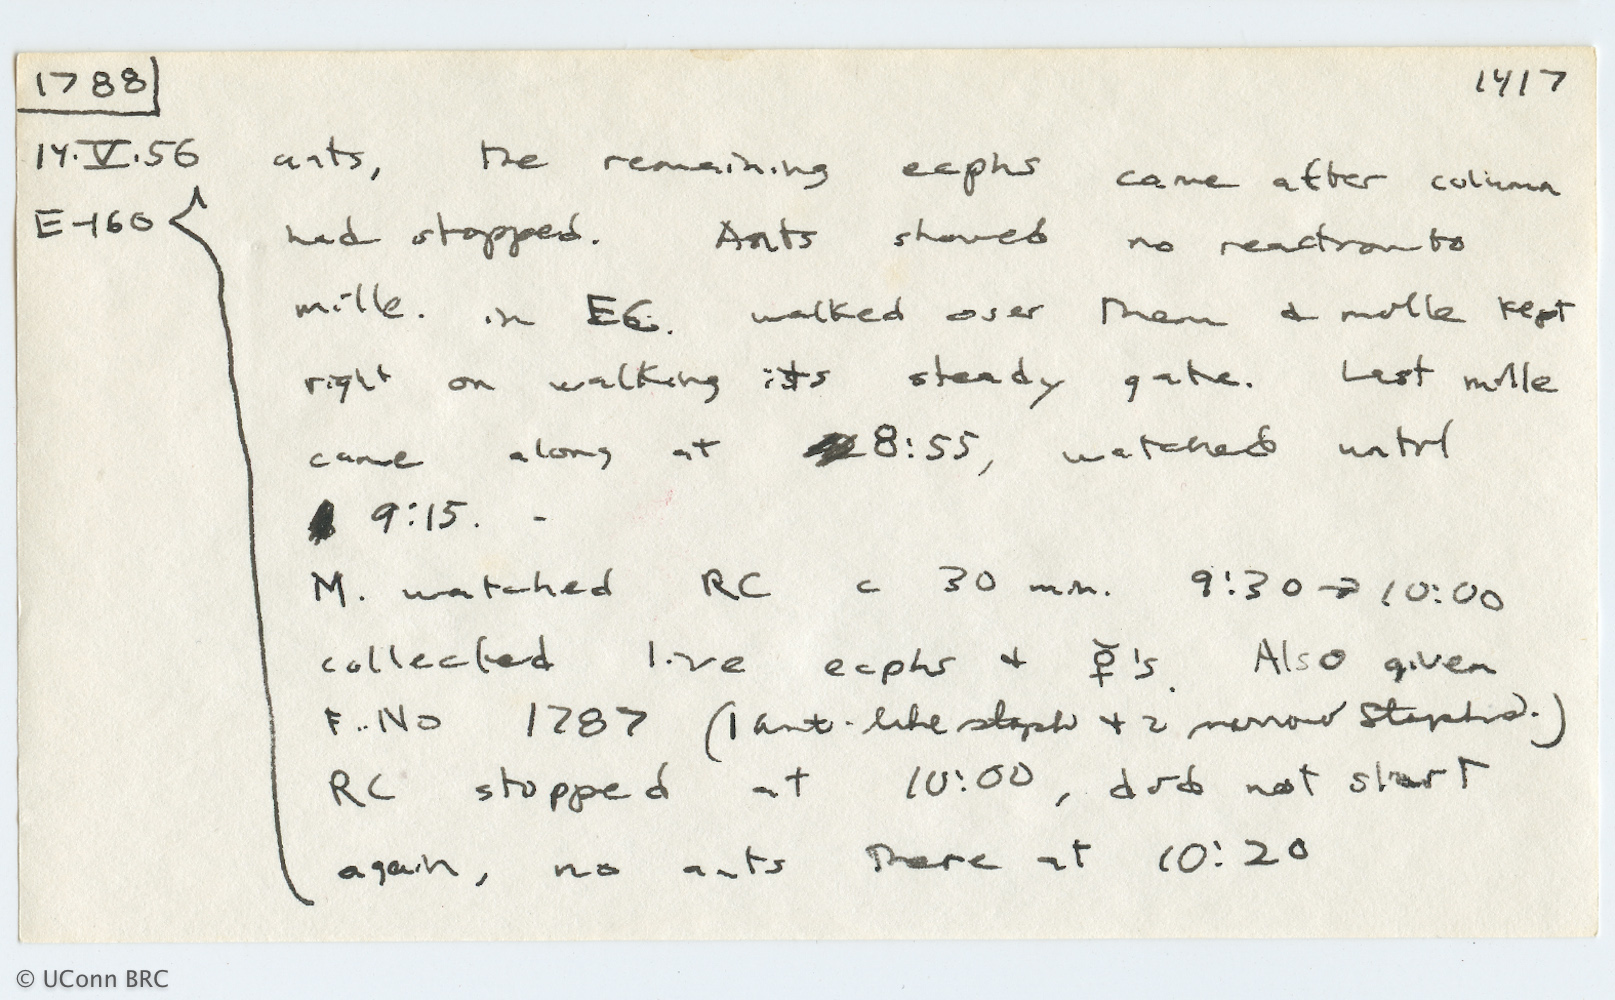 1788 1417
14.V.56 ants, the remaining ecphs came after column
E-160 had stopped. Ants showed no reaction to
mille. in EC. walked over them & mille kept
right on walking its steady gate. Last mille
came along at 8:55, watched until
9:15. -
M. watched RC c 30 min. 9:30 → 10:00
collected live ecphs & ☿'s. Also given
F. No 1787 (1 ant-like staph & 2 narrow Staphs.)
RC stopped at 10:00, did not start
again, no ants there at 10:20
© UConn BRC